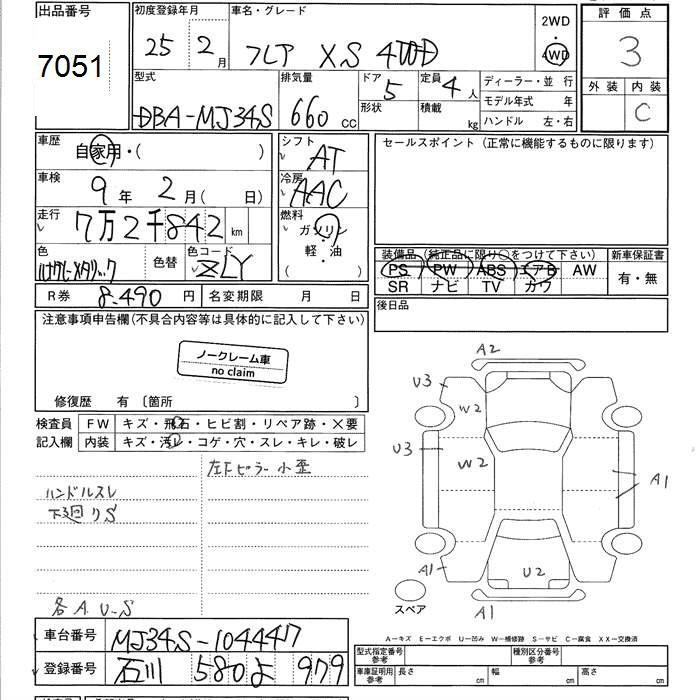 出品番号
7051
初度登録年月
25 年 2 月
車名・グレード
フレア XS 4WD
2WD
4WD
評価点
3
外装 内装
C
型式
DBA-MJ34S
排気量
660 CC
ドア
5
形状
定員
4 人
積載
kg
ディーラー・並 行
モデル年式 年
ハンドル 左・右
車歴
自家用・( )
シフト
AT
セールスポイント (正常に機能するものに限ります)
車検
9 年 2 月 ( 日)
冷房
AAC
走行
7万2千842 km
燃料
ガソリン
軽・油
色
色替
色コード
ZLY
装備品 (純正品に限り○をつけて下さい)
新車保証書
PS PW ABS エアB AW
SR ナビ TV カワ
有・無
R券 8,490 円
名変期限 月 日
後日品
注意事項申告欄(不具合内容等は具体的に記入して下さい)
ノークレーム車
no claim
修復歴 有 〔箇所 〕
検査員
記入欄
FW キズ・飛石・ヒビ割・リペア跡・X要
内装 キズ・汚レ・コゲ・穴・スレ・キレ・破レ
左下ピラー小歪
ハンドルスレ
下廻りS
各A U-S
A2
U3
W2
U3
W2
A1
A1
U2
A1
スペア
A-キズ E-エクボ U-凹み W-補修跡 S-サビ C-腐食 XX-交換済
車台番号
MJ34S-104447
登録番号
石川 580 よ 979
型式指定番号
参考
種別区分番号
参考
車庫証明用
参考
長さ cm 幅 cm 高さ cm